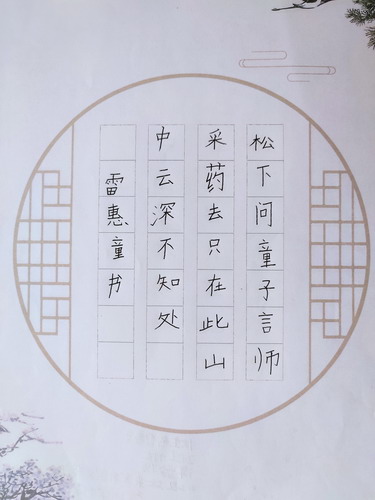 松下问童子言师
采药去只在此山
中云深不知处
雷惠童书